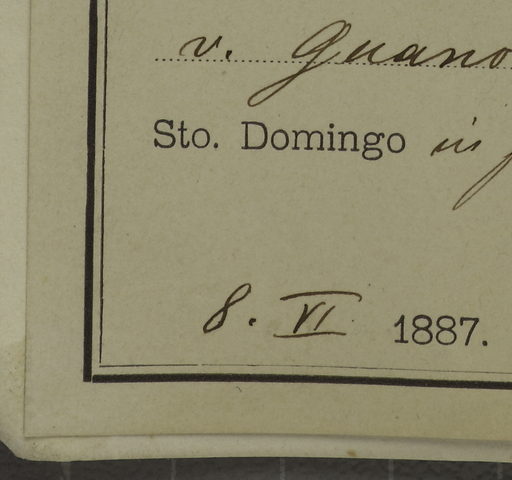 v. Guano
Sto. Domingo in
8. VI 1887.